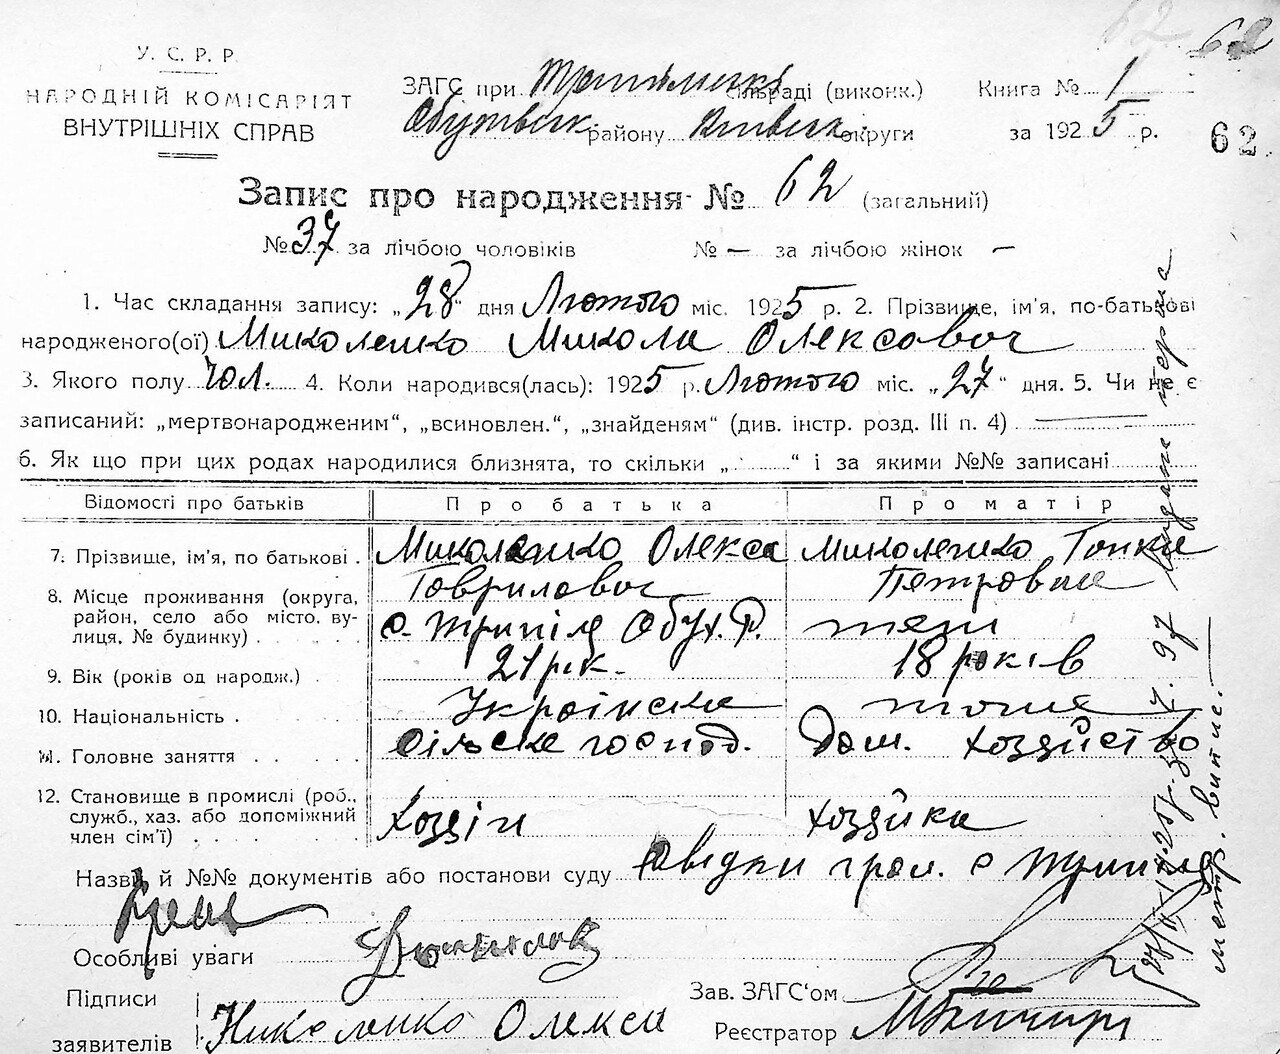 62 62
У. С. Р. Р.
НАРОДНІЙ КОМІСАРІЯТ
ВНУТРІШНІХ СПРАВ
ЗАГС при Трипільські сільраді (виконк.) Книга № 1
Обухівськ. району Київськ. округи за 1925 р.
62
Запис про народження № 62 (загальний)
№ 37 за лічбою чоловіків № — за лічбою жінок —
1. Час складання запису: „28“ дня Лютого міс. 1925 р. 2. Прізвище, ім'я, по-батькові
народженого(ої) Миколенко Микола Олексович
3. Якого полу чол. 4. Коли народився(лась): 1925 р. Лютого міс. „27“ дня. 5. Чи не є
записаний: „мертвонародженим“, „всиновлен.“, „знайденям“ (див. інстр. розд. III п. 4)
6. Як що при цих родах народилися близнята, то скільки „ “ і за якими №№ записані
Відомості про батьків Про батька Про матір
7. Прізвище, ім'я, по батькові Миколенко Олекса Гаврилович Миколенко Гопка Петровна
8. Місце проживання (округа,
район, село або місто, ву-
лиця, № будинку) с. Трипілля Обух. Р. теж
9. Вік (років од народж.) 21 рік. 18 років
10. Національність Українська тоже
11. Головне заняття сільське господ. Дом. хозяйство
12. Становище в промислі (роб.,
служб., хаз. або допоміжний
член сім'ї) Хозяін хозяйка
Назви й №№ документів або постанови суду Свідки гром. с Трипілля
Особливі уваги
Підписи
заявителів Николенко Олекса
Зав. ЗАГС'ом
Реєстратор
метр. випис.